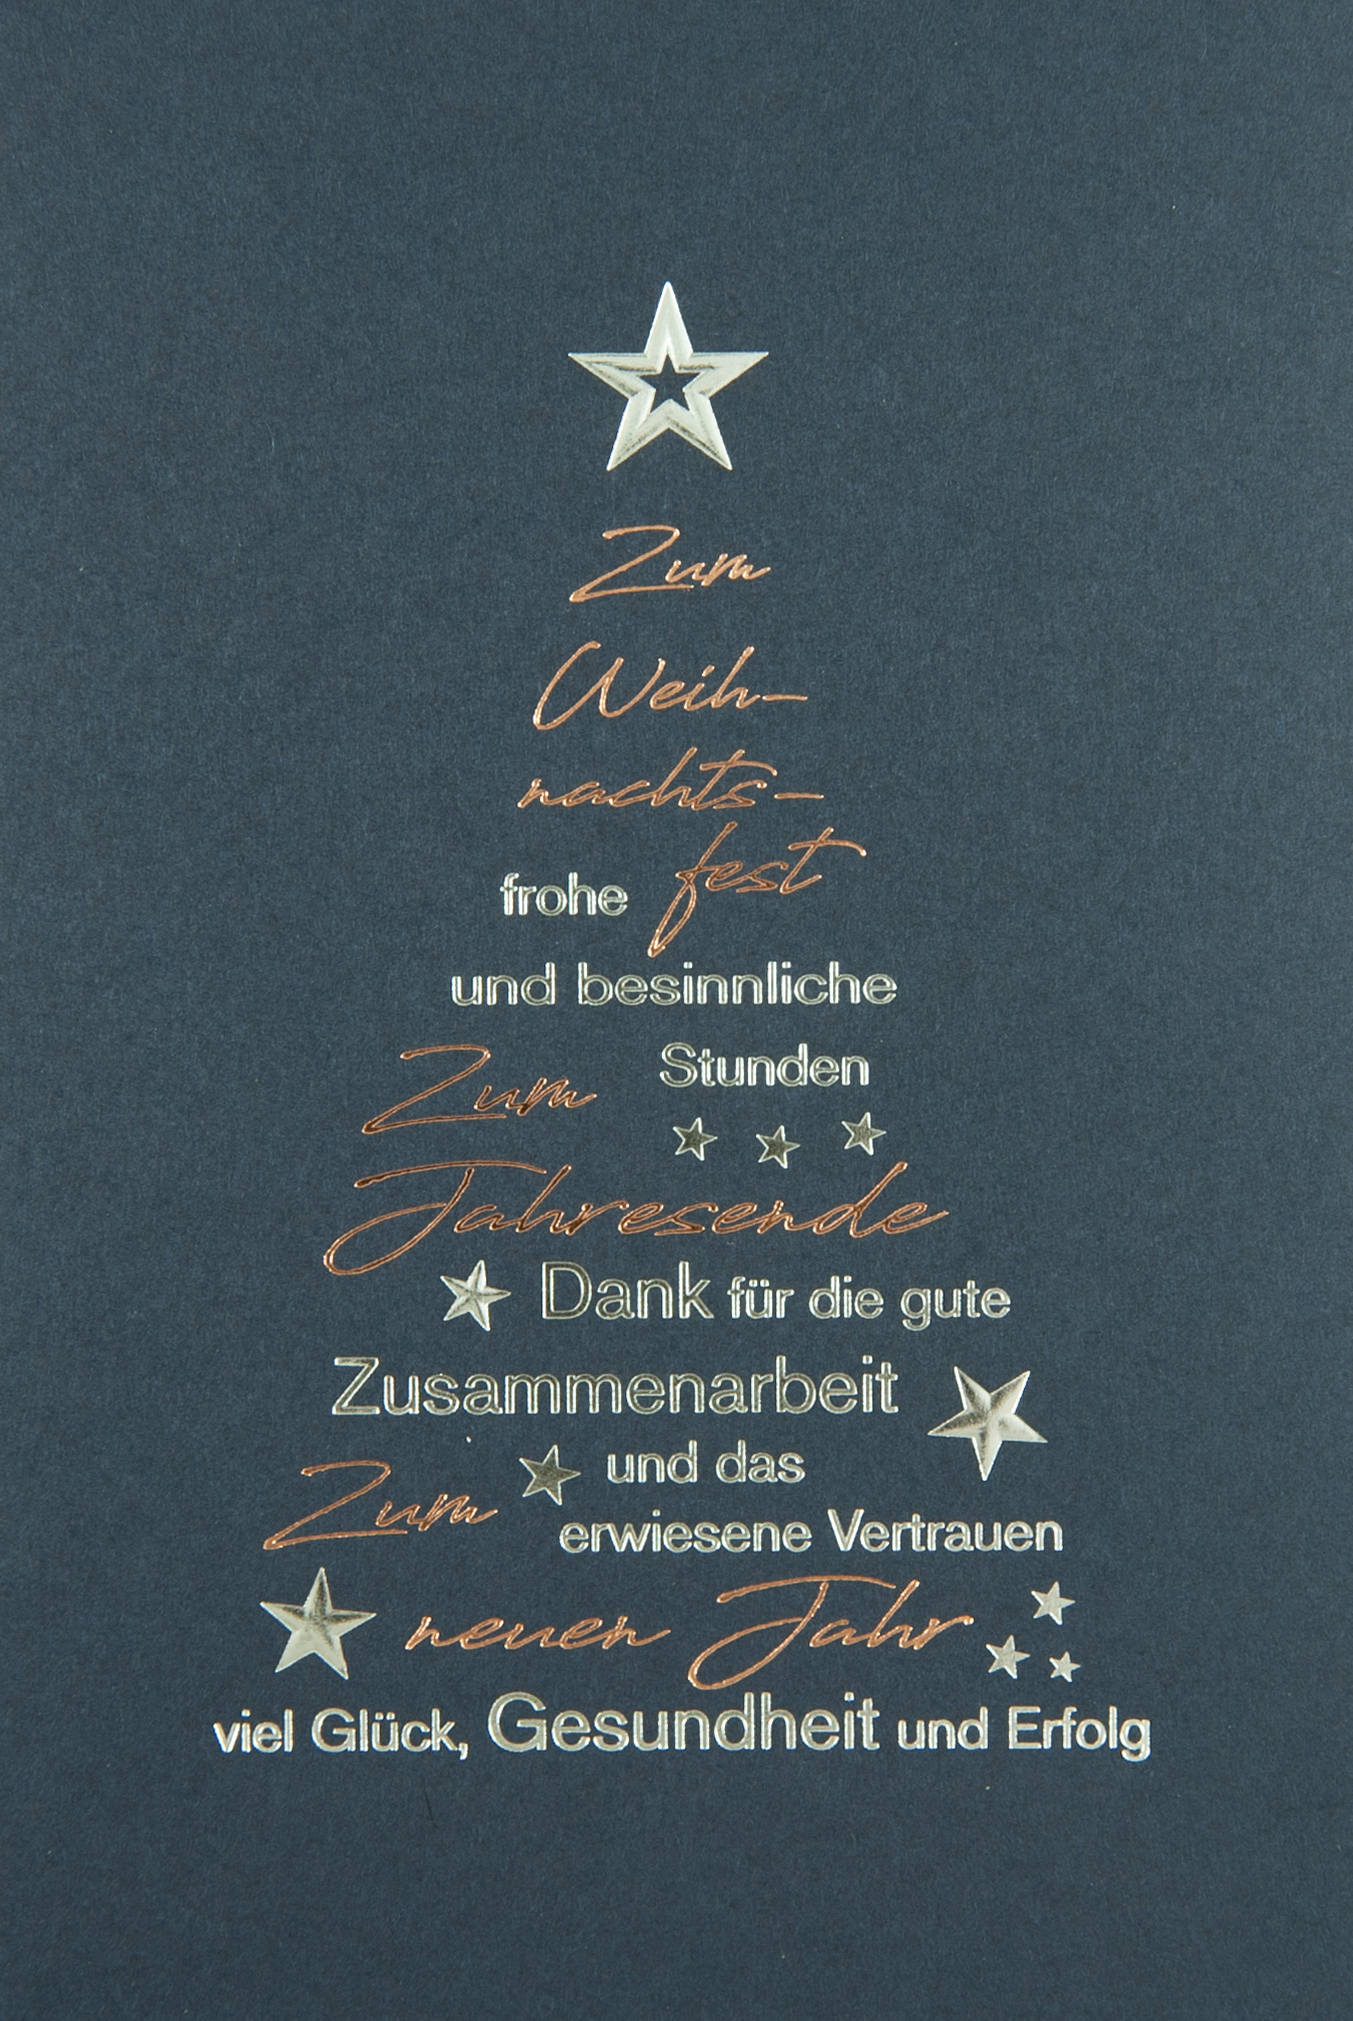 Zum
Weih-
nachts-
frohe fest
und besinnliche
Zum Stunden
Jahresende
Dank für die gute
Zusammenarbeit
Zum und das
erwiesene Vertrauen
neuen Jahr
viel Glück, Gesundheit und Erfolg